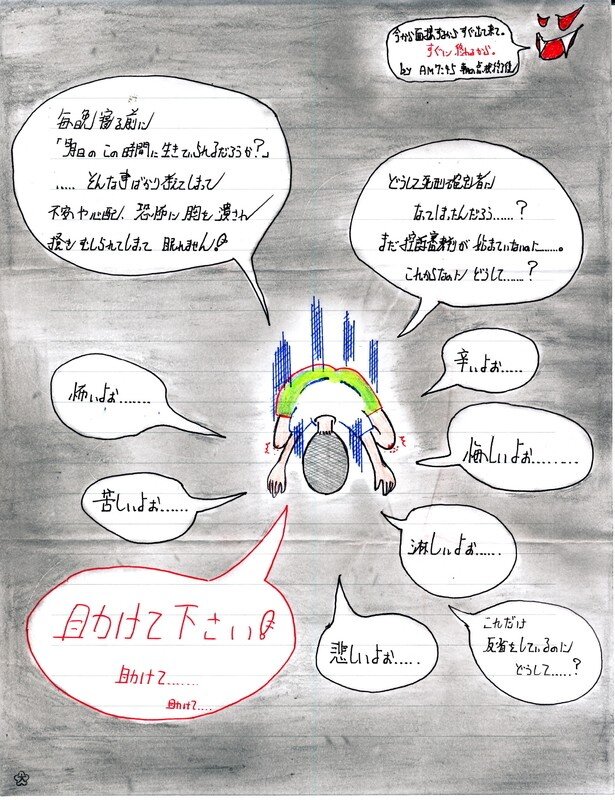 今から面接するからすぐ出て来て。
すぐに終わるから。
by AM7:45
毎日晩寝る前に
「明日のこの時間に生きていられるだろうか?」
.....そんな事ばかり考えてしまって
不安や心配、恐怖に胸を潰され
掻きむしられてしまって眠れません!
どうして死刑確定者に
なってしまったんだろう......?
まだ控訴審も始まっていないのに......。
これからなのにどうして......?
怖いよぉ........
辛いよぉ......
悔しいよぉ.........
苦しいよぉ......
淋しいよぉ......
助けて下さい!
助けて........
助けて....
悲しいよぉ.....
これだけ
反省をしているのに
どうして.....?